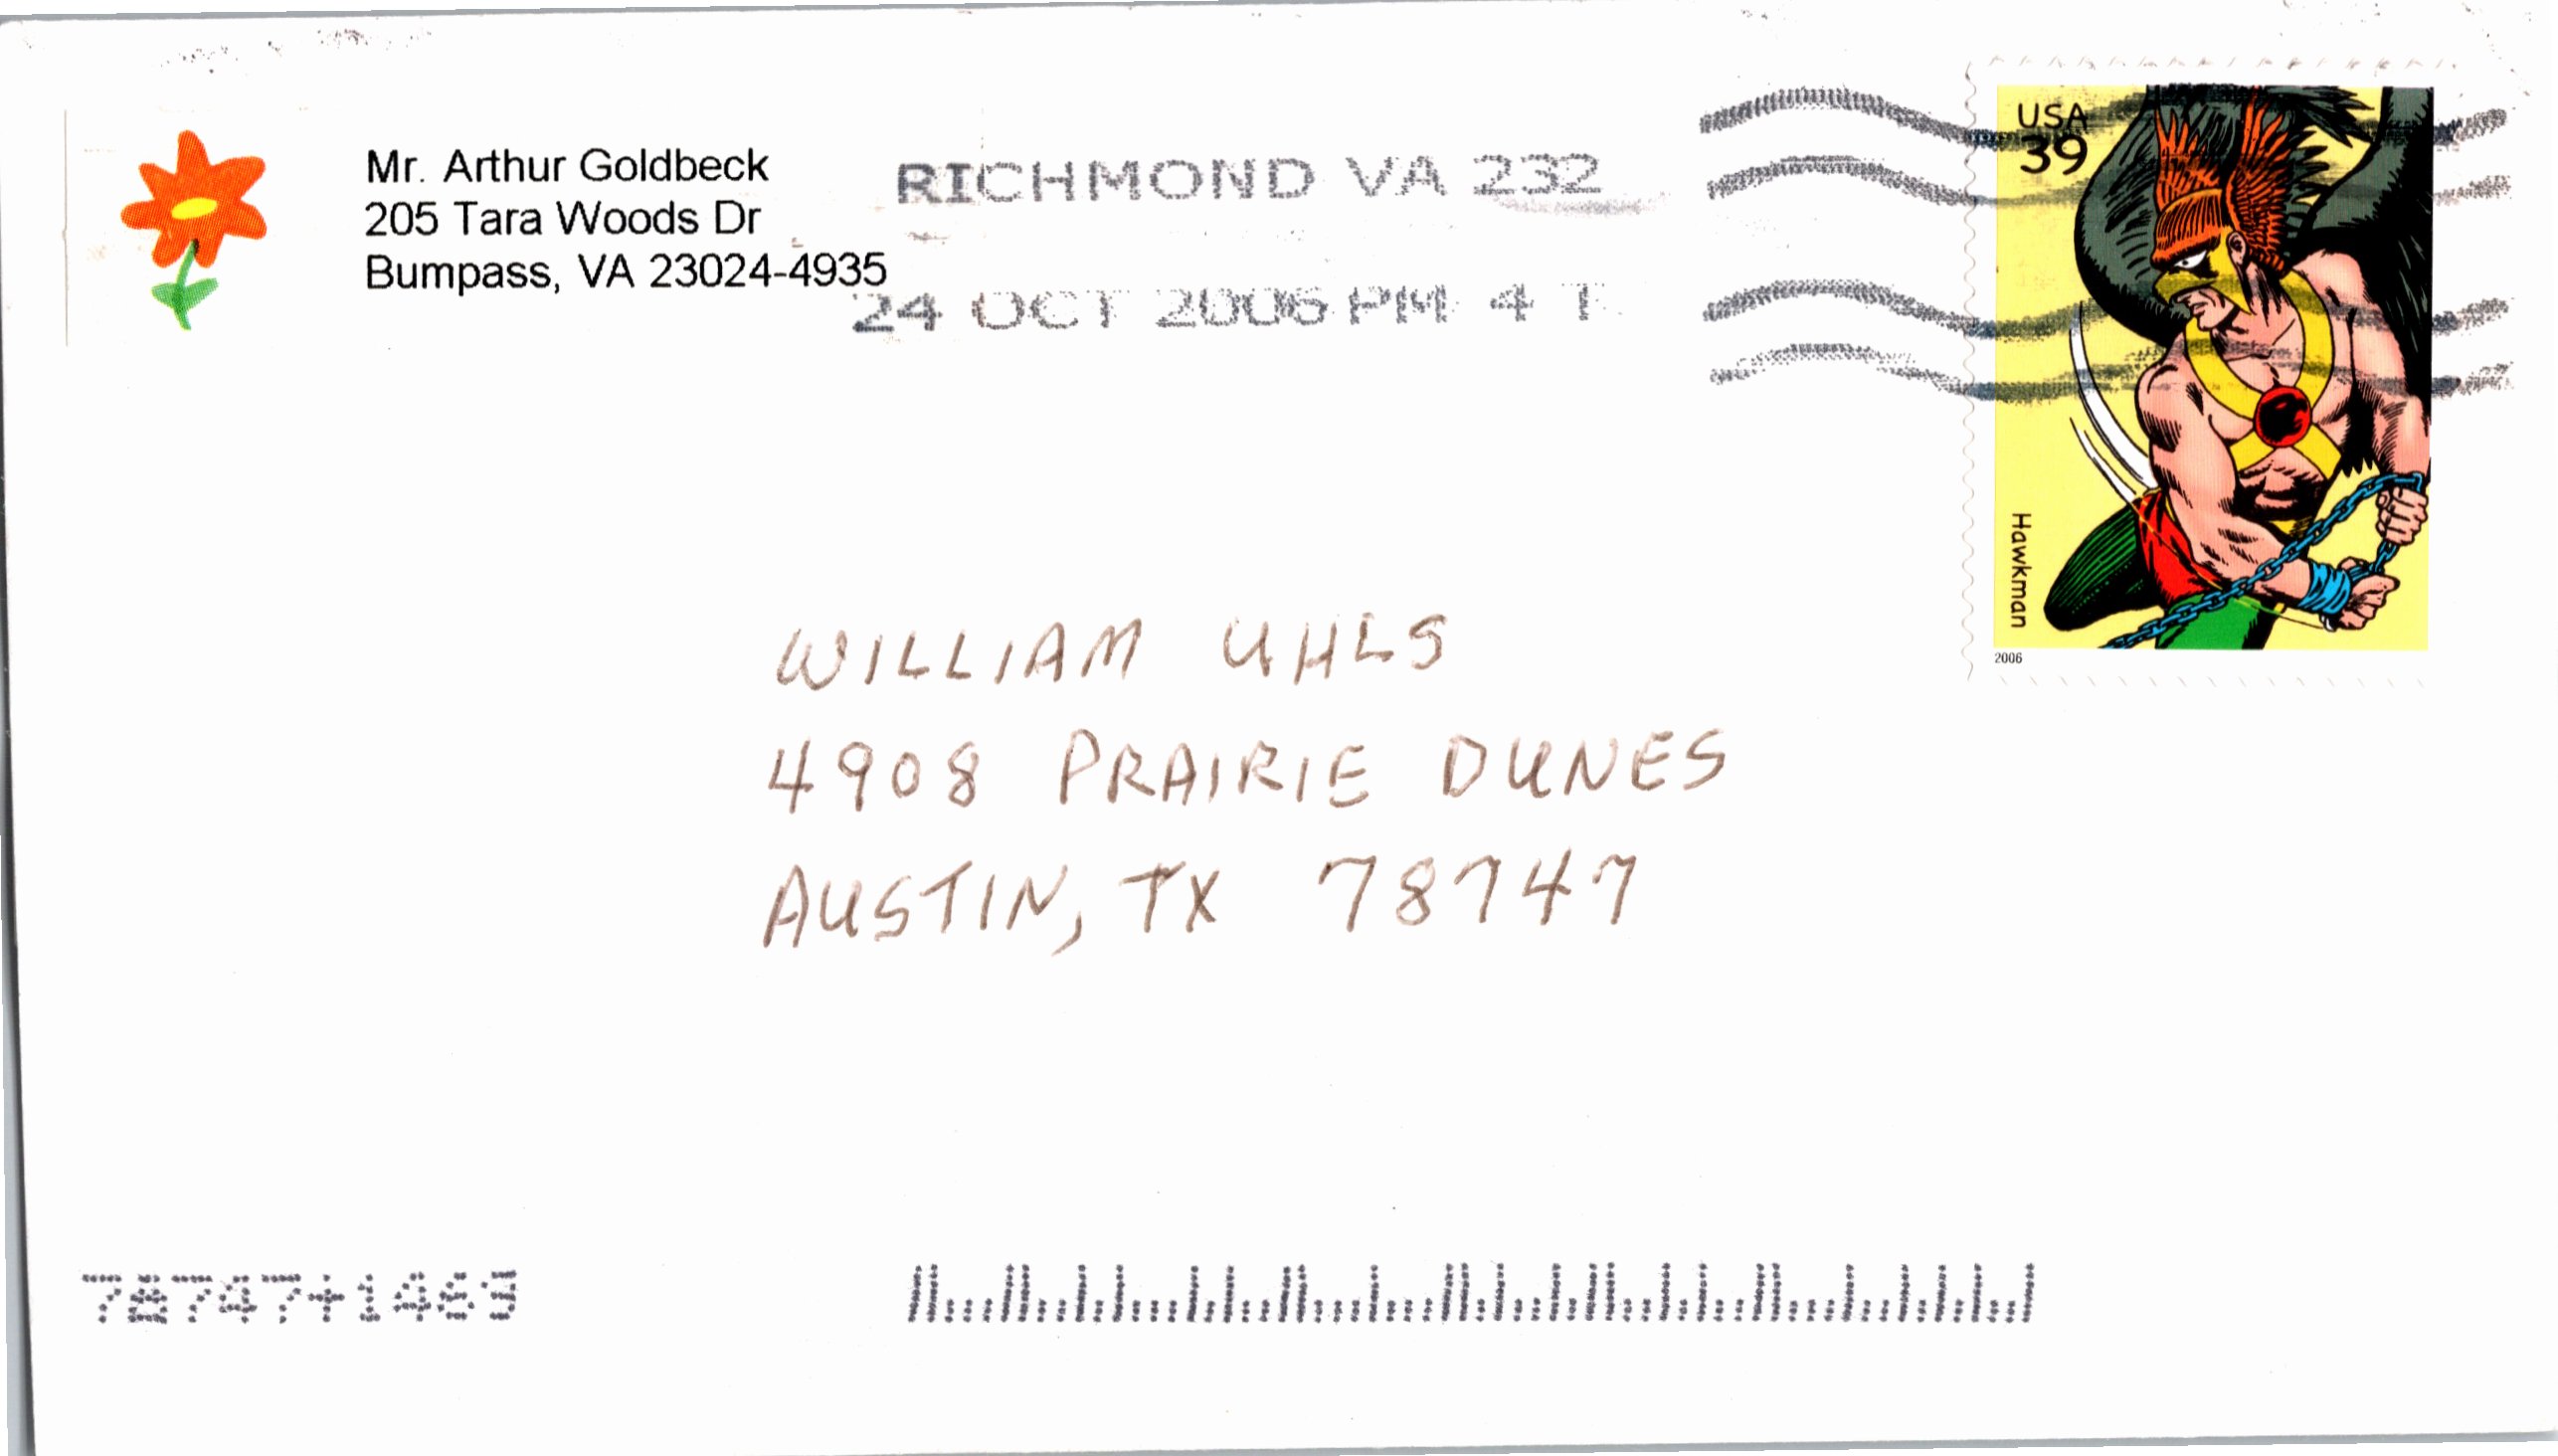 Mr. Arthur Goldbeck
205 Tara Woods Dr
Bumpass, VA 23024-4935
RICHMOND VA 232
24 OCT 2006 PM 4 T
USA
39
Hawkman
2006
WILLIAM UHLS
4908 PRAIRIE DUNES
AUSTIN, TX 78747
78747+1461